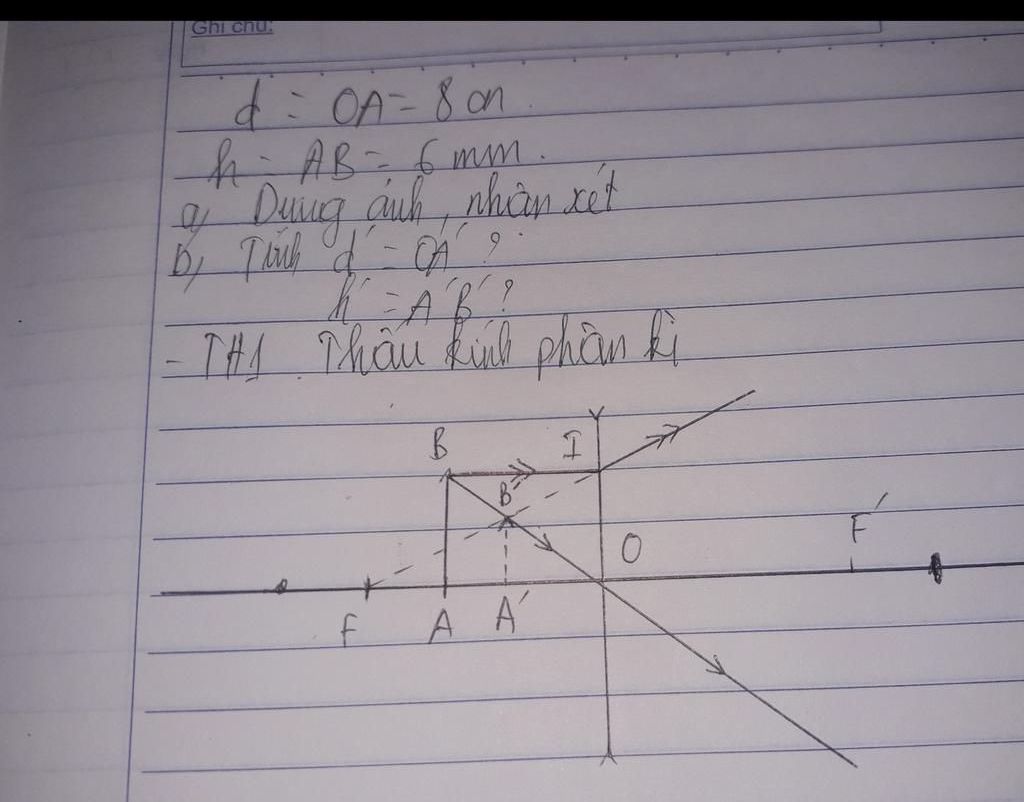 Ghi chú:
d = OA = 8 cm.
h = AB = 6 mm.
a, Dựng ảnh, nhận xét
b, Tính d' = OA' ?
h' = A'B' ?
- TH1. Thấu kính phân kì
B
I
B'
O
F'
F
A
A'